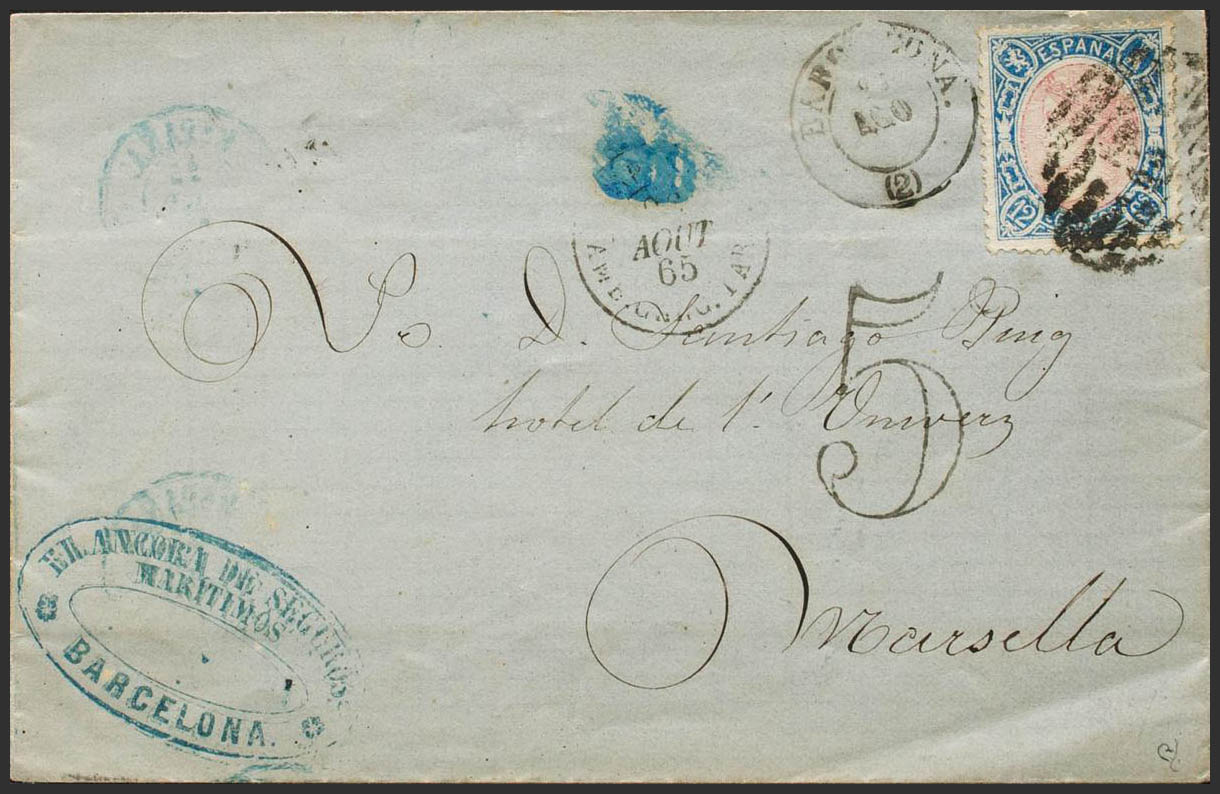 BARCELONA.
AGO
(2)
ESPANA
12
AOUT
65
5
Sr. D. Santiago Puig
hotel de l' Univerz
Marsella
EL ANCORA DE SEGUROS
MARITIMOS
BARCELONA.